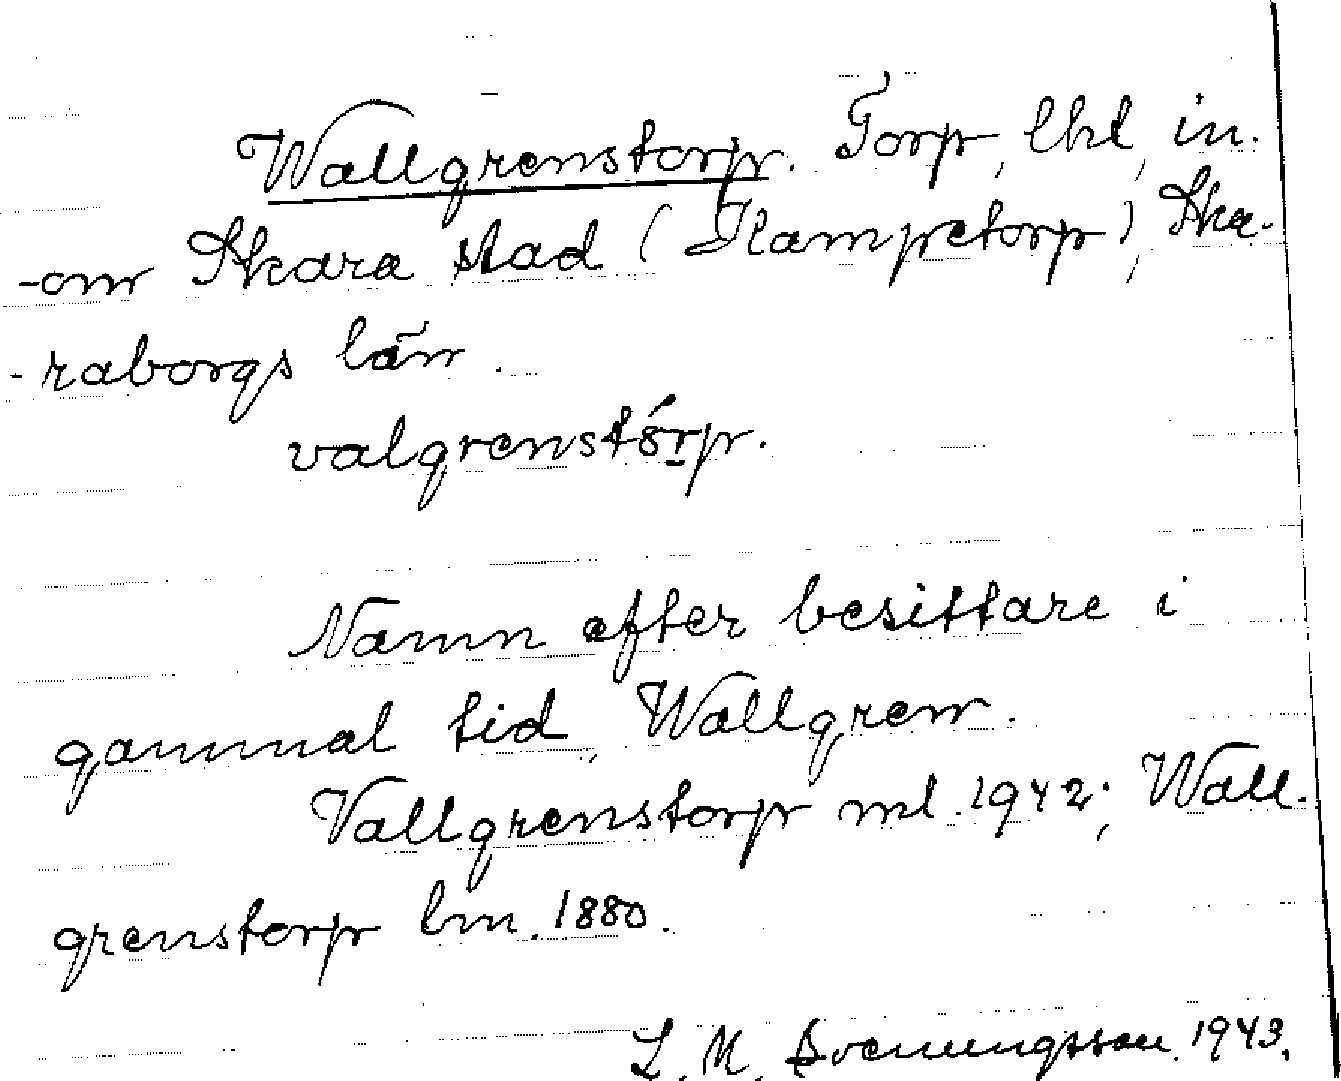 Wallgrenstorp. Torp, lhl, in-
-om Skara stad (Kampetorp), Ska-
-raborgs län.
valgrenstórp.
Namn efter besittare i
gammal tid, Wallgren.
Vallgrenstorp ml. 1942; Wall-
grenstorp lm. 1880.
L. M. Svenungsson. 1943.